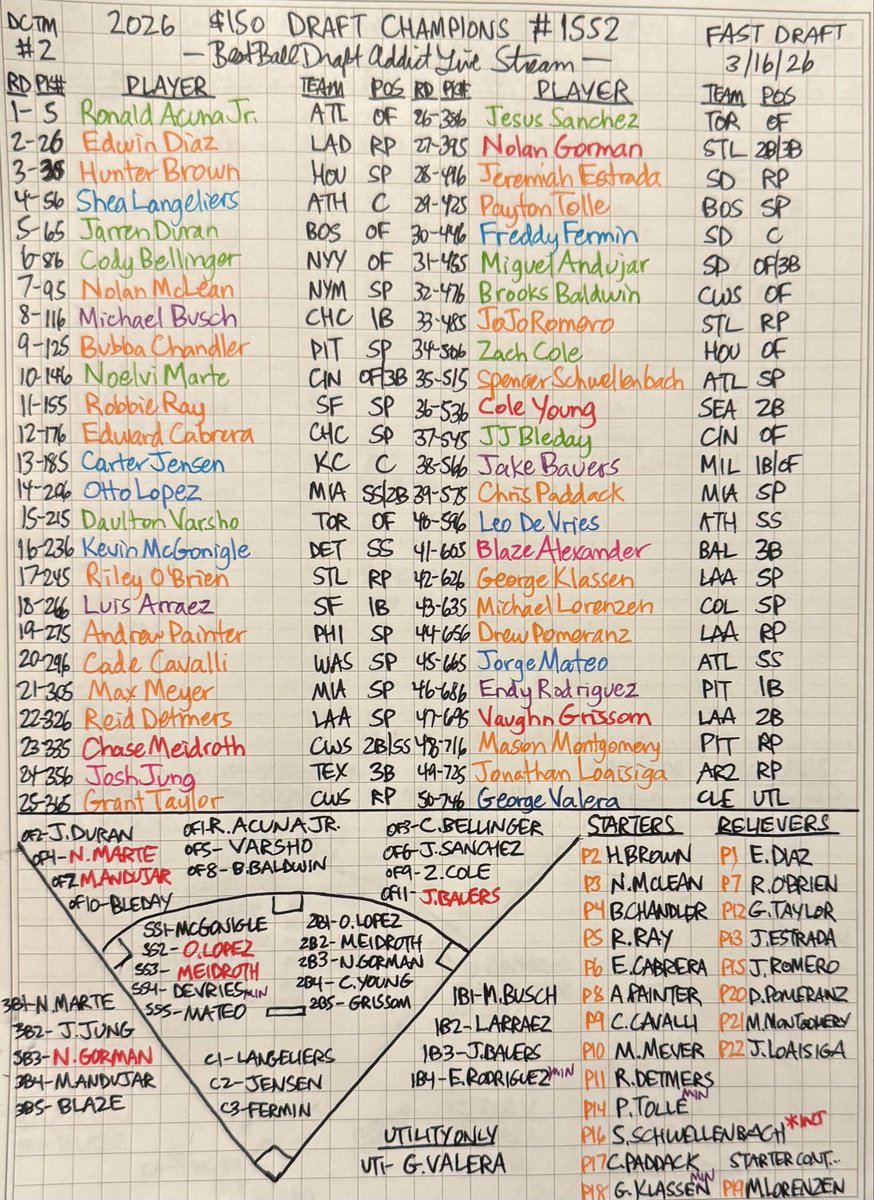 DCTM #2
2026 $150 DRAFT CHAMPIONS #1552
— BestBall Draft Addict Live Stream —
FAST DRAFT
3/16/26
RD PK# PLAYER TEAM POS
1-5 Ronald Acuna Jr. ATL OF
2-26 Edwin Diaz LAD RP
3-35 Hunter Brown HOU SP
4-56 Shea Langeliers ATH C
5-65 Jarren Duran BOS OF
6-86 Cody Bellinger NYY OF
7-95 Nolan McLean NYM SP
8-116 Michael Busch CHC 1B
9-125 Bubba Chandler PIT SP
10-146 Noelvi Marte CIN OF/3B
11-155 Robbie Ray SF SP
12-176 Edward Cabrera CHC SP
13-185 Carter Jensen KC C
14-206 Otto Lopez MIA SS/2B
15-215 Daulton Varsho TOR OF
16-236 Kevin McGonigle DET SS
17-245 Riley O'Brien STL RP
18-266 Luis Arraez SF 1B
19-275 Andrew Painter PHI SP
20-296 Cade Cavalli WAS SP
21-305 Max Meyer MIA SP
22-326 Reid Detmers LAA SP
23-335 Chase Meidroth CWS 2B/SS
24-356 Josh Jung TEX 3B
25-365 Grant Taylor CWS RP
RD PK# PLAYER TEAM POS
26-386 Jesus Sanchez TOR OF
27-395 Nolan Gorman STL 2B/3B
28-416 Jeremiah Estrada SD RP
29-425 Payton Tolle BOS SP
30-446 Freddy Fermin SD C
31-455 Miguel Andujar SD OF/3B
32-476 Brooks Baldwin CWS OF
33-485 JoJo Romero STL RP
34-506 Zach Cole HOU OF
35-515 Spencer Schwellenbach ATL SP
36-536 Cole Young SEA 2B
37-545 JJ Bleday CIN OF
38-566 Jake Bauers MIL 1B/OF
39-575 Chris Paddack MIA SP
40-596 Leo De Vries ATH SS
41-605 Blaze Alexander BAL 3B
42-626 George Klassen LAA SP
43-635 Michael Lorenzen COL SP
44-656 Drew Pomeranz LAA RP
45-665 Jorge Mateo ATL SS
46-686 Endy Rodriguez PIT 1B
47-695 Vaughn Grissom LAA 2B
48-716 Mason Montgomery PIT RP
49-725 Jonathan Loaisiga ARZ RP
50-746 George Valera CLE UTL
OF2-J.DURAN
OF4-N.MARTE
OF7 MANDUJAR
OF10-BLEDAY
OF1-R.ACUNA JR.
OF5-VARSHO
OF8-B.BALDWIN
OF3-C.BELLINGER
OF6-J.SANCHEZ
OF9-Z.COLE
OF11-J.BAUERS
SS1-MCGONIGLE
SS2-O.LOPEZ
SS3-MEIDROTH
SS4-DEVRIES MIN
SS5-MATEO
2B1-O.LOPEZ
2B2-MEIDROTH
2B3-N.GORMAN
2B4-C.YOUNG
2B5-GRISSOM
3B1-N.MARTE
3B2-J.JUNG
3B3-N.GORMAN
3B4-MANDUJAR
3B5-BLAZE
C1-LANGELIERS
C2-JENSEN
C3-FERMIN
1B1-M.BUSCH
1B2-L.ARRAEZ
1B3-J.BAUERS
1B4-E.RODRIGUEZ MIN
UTILITY ONLY
UT1-G.VALERA
STARTERS
P2 H.BROWN
P3 N.MCLEAN
P4 B.CHANDLER
P5 R.RAY
P6 E.CABRERA
P8 A.PAINTER
P9 C.CAVALLI
P10 M.MEYER
P11 R.DETMERS
P14 P.TOLLE MIN
P16 S.SCHWELLENBACH *INJ
P17 C.PADDACK
P18 G.KLASSEN MIN
RELIEVERS
P1 E.DIAZ
P7 R.OBRIEN
P12 G.TAYLOR
P13 J.ESTRADA
P15 J.ROMERO
P20 D.POMERANZ
P21 M.MONTGOMERY
P22 J.LOAISIGA
STARTER CONT...
P19 M.LORENZEN